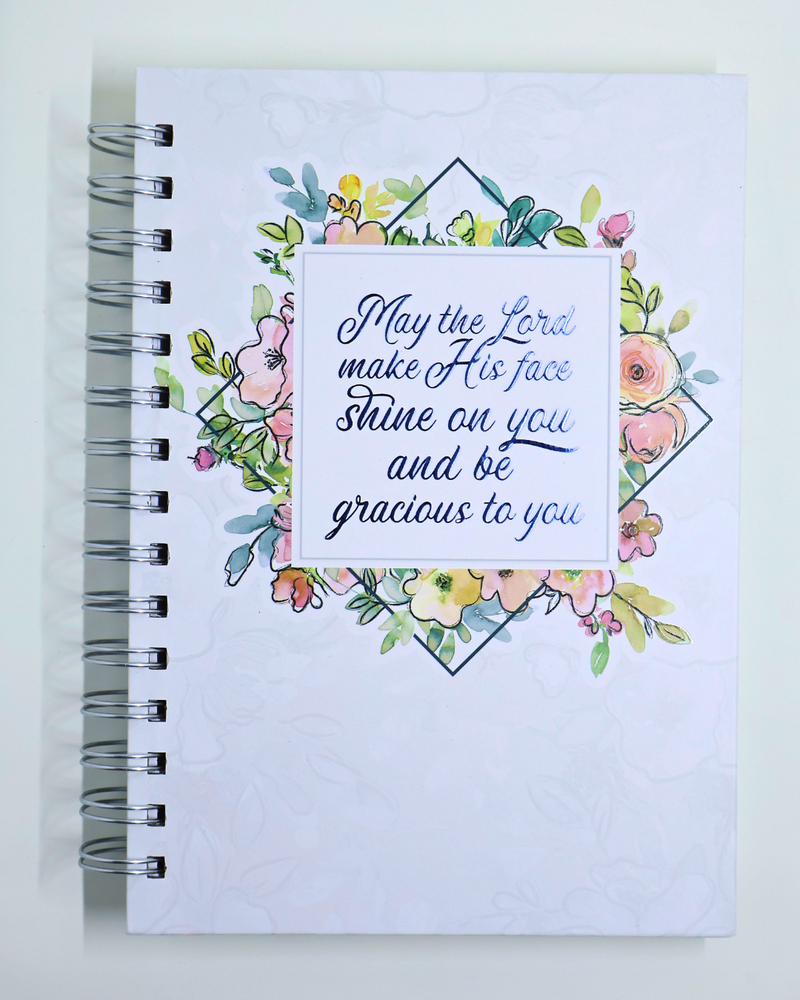 May the Lord
make His face
shine on you
and be
gracious to you